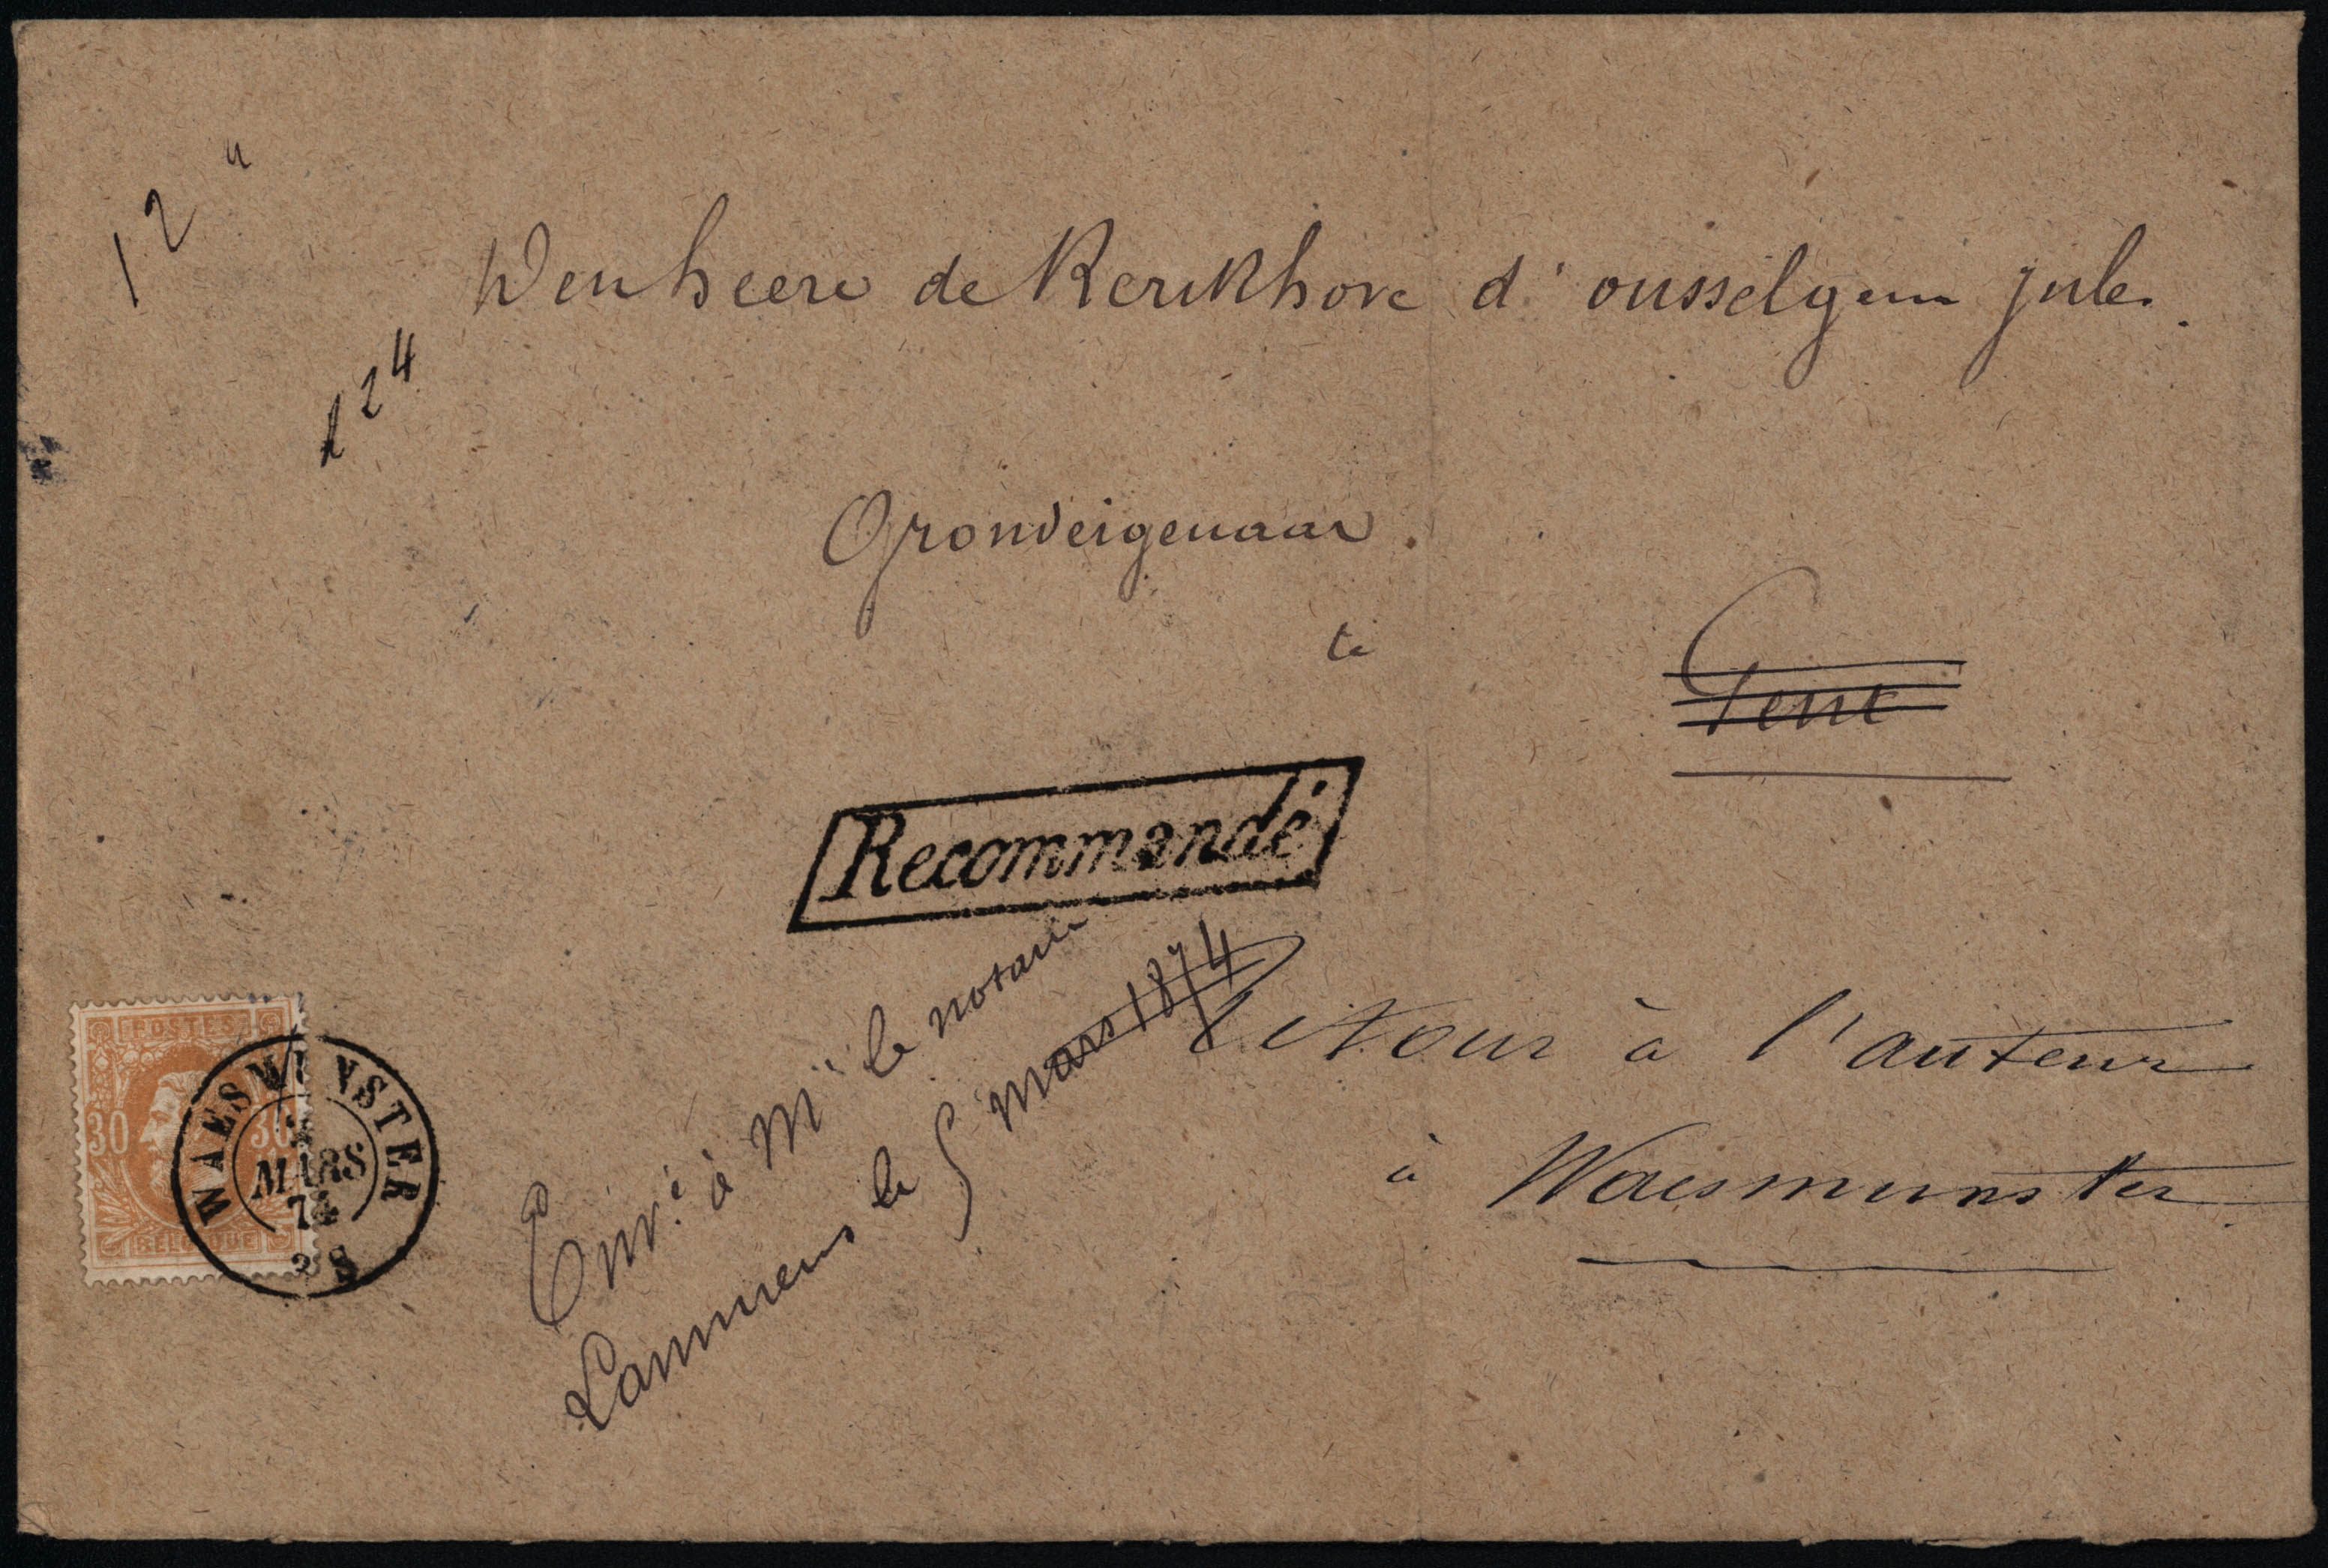 12 "
124
Den heere de Kerckhove d'ousselgem jules.
Grondeigenaar.
te
Gent
Recommandé
Retour à l'auteur
à Waesmunster
Envé à Mr le notaire
Lammens le 5 mars 1874
POSTES
30 30
BELGIQUE
WAESMUNSTER
MARS
74